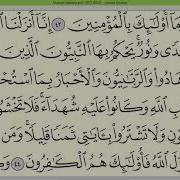 مَآ أُو۟لَـٰٓئِكَ بِٱلْمُؤْمِنِينَ ٤٣ إِنَّآ أَنزَلْنَا
هُدًى وَنُورٌ يَحْكُمُ بِهَا ٱلنَّبِيُّونَ ٱلَّذِينَ
هَادُوا۟ وَٱلرَّبَّـٰنِيُّونَ وَٱلْأَحْبَارُ بِمَا ٱسْتُحْـ
ـبِ ٱللَّهِ وَكَانُوا۟ عَلَيْهِ شُهَدَآءَ فَلَا تَخْشَوُا۟
ـوْنِ وَلَا تَشْتَرُوا۟ بِـَٔايَـٰتِى ثَمَنًا قَلِيلًا وَمَـ
ـزَلَ ٱللَّهُ فَأُو۟لَـٰٓئِكَ هُمُ ٱلْكَـٰفِرُونَ ٤٤ وَكَـ